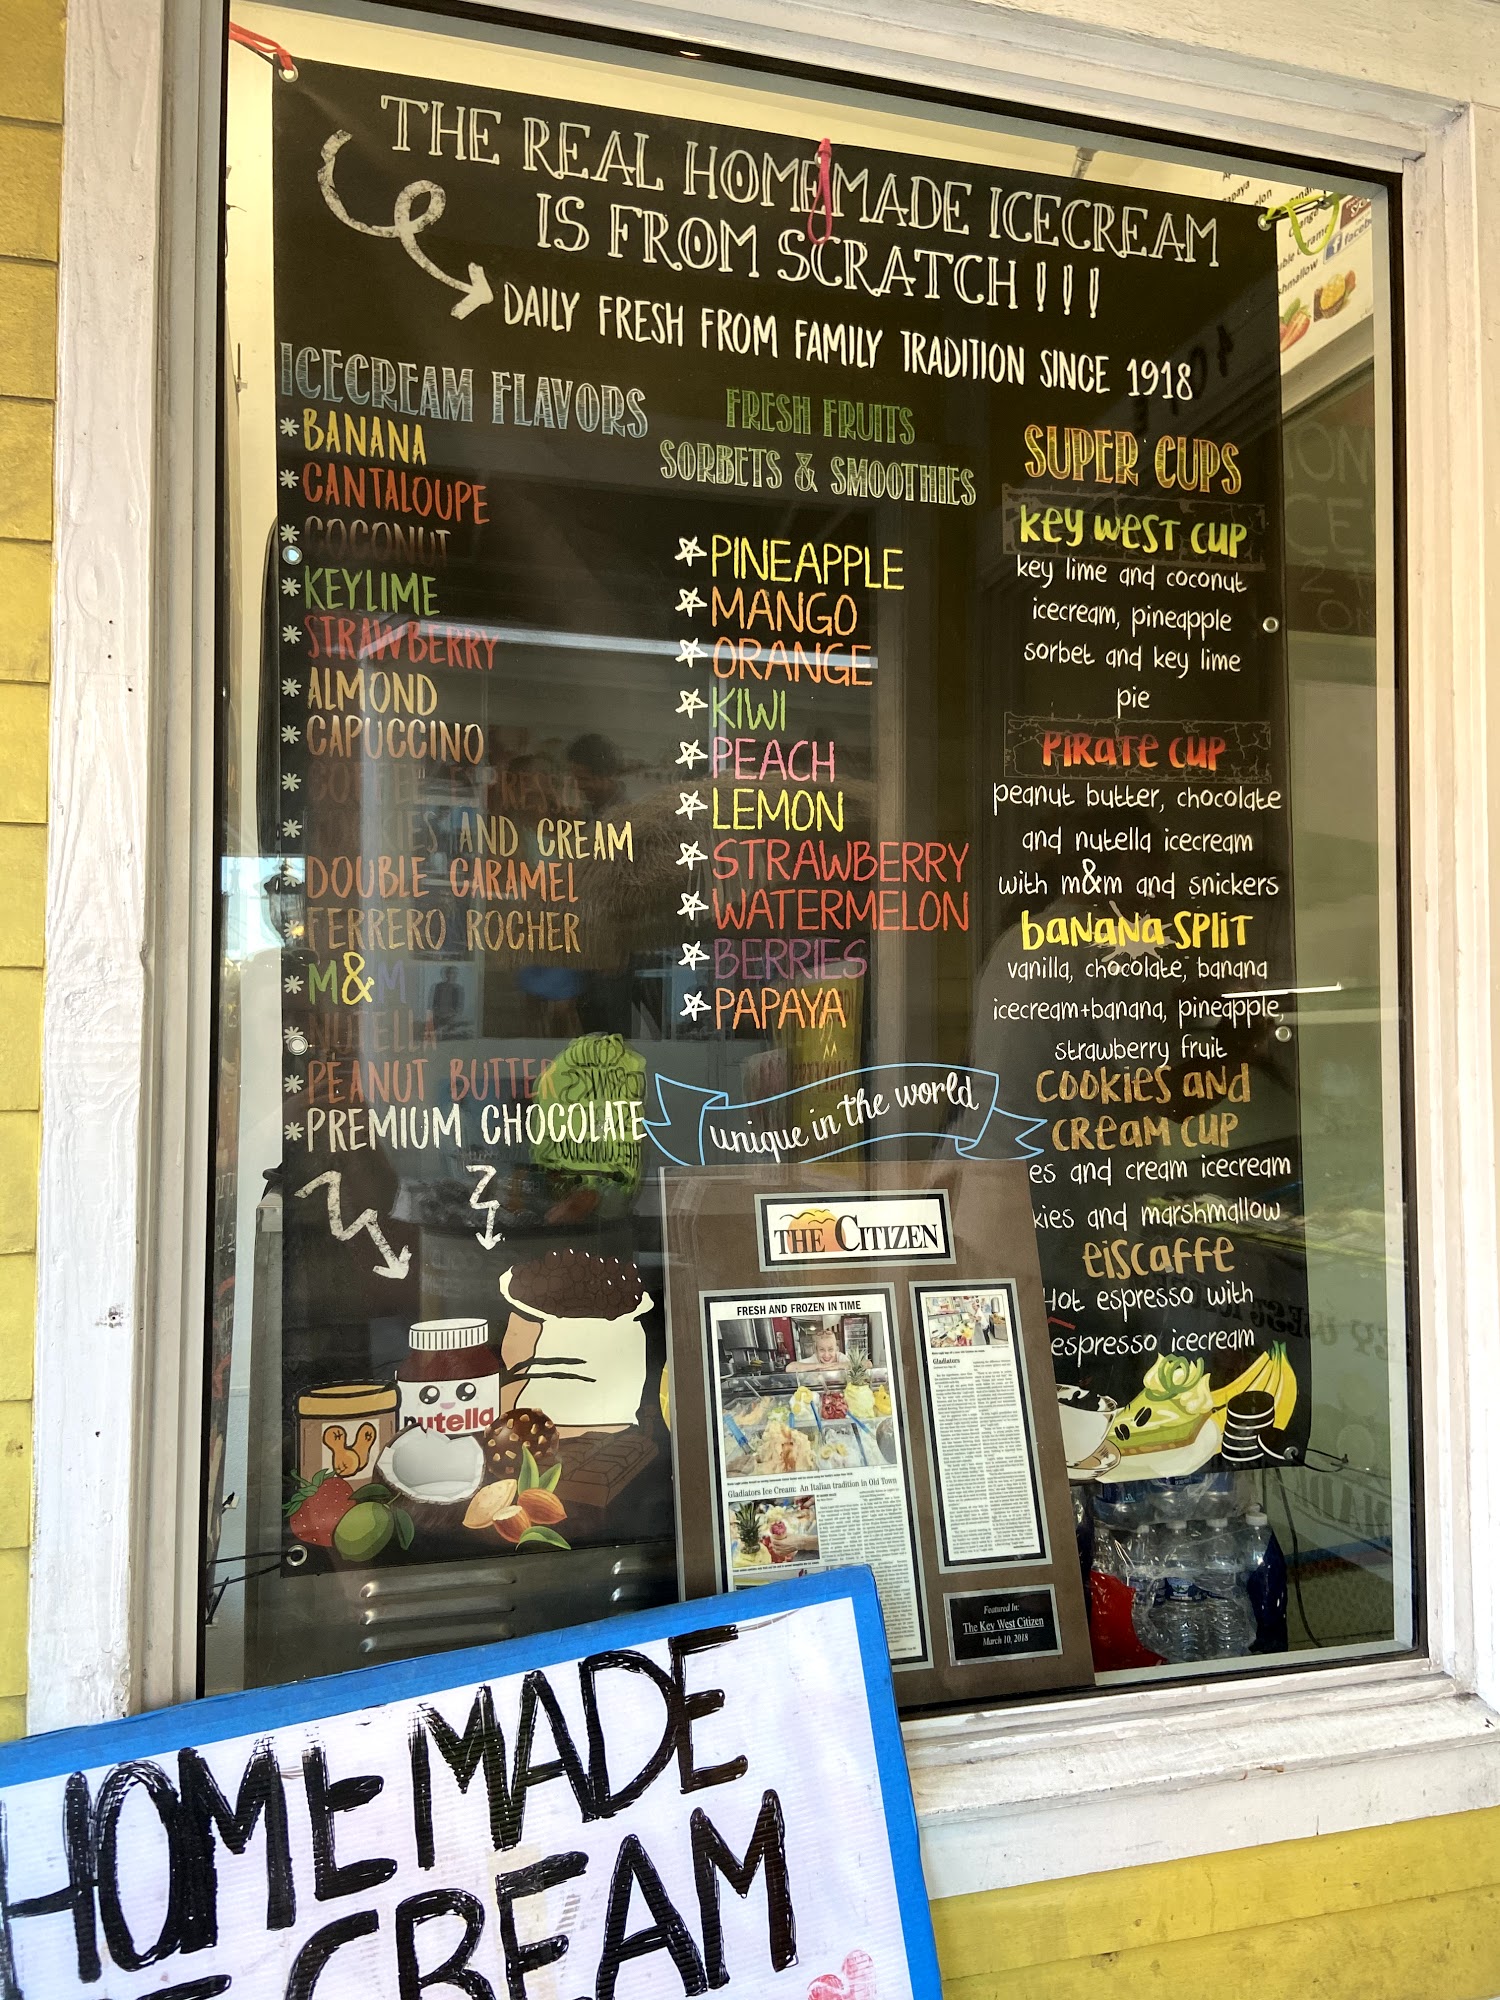 THE REAL HOMEMADE ICECREAM
IS FROM SCRATCH!!!
DAILY FRESH FROM FAMILY TRADITION SINCE 1918
ICECREAM FLAVORS
*BANANA
*CANTALOUPE
*COCONUT
*KEYLIME
*STRAWBERRY
*ALMOND
*CAPUCCINO
*COFFEE ESPRESSO
*COOKIES AND CREAM
*DOUBLE CARAMEL
*FERRERO ROCHER
*M&M
*NUTELLA
*PEANUT BUTTER
*PREMIUM CHOCOLATE
nutella
FRESH FRUITS
SORBETS & SMOOTHIES
PINEAPPLE
MANGO
ORANGE
KIWI
PEACH
LEMON
STRAWBERRY
WATERMELON
BERRIES
PAPAYA
unique in the world
SUPER CUPS
KEY WEST CUP
key lime and coconut
icecream, pineapple
sorbet and key lime
pie
PIRATE CUP
peanut butter, chocolate
and nutella icecream
with m&m and snickers
BANANA SPLIT
vanilla, chocolate, banana
icecream+banana, pineapple,
strawberry fruit
COOKIES AND
CREAM CUP
es and cream icecream
kies and marshmallow
EISCAFFE
Hot espresso with
espresso icecream
THE CITIZEN
FRESH AND FROZEN IN TIME
Gladiators Ice Cream: An Italian tradition in Old Town
Gladiators
Featured In:
The Key West Citizen
March 10, 2018
HOMEMADE
ICE CREAM